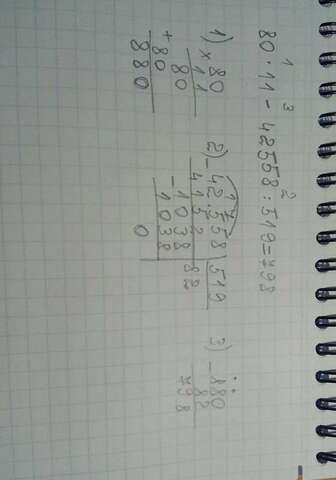 1 3 2
80·11-42558:519=798
1) × 80
11
80
+ 80
880
2) - 42558 | 519
4152 82
- 1038
1038
0
3) - 880
82
798